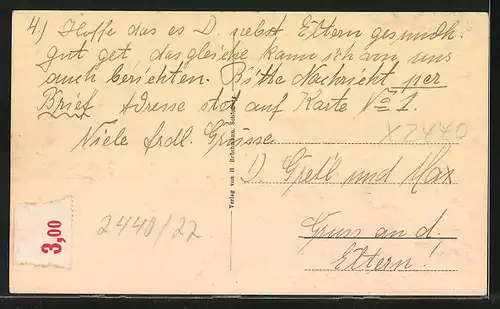 4.) Hoffe das es D. nebst Eltern gesundh.
gut get, das gleiche kann ich von uns
auch berichten. Bitte Nachricht per
Brief Adresse stet auf Karte No 1.
Viele frdl. Grüsse.
D. Gretl und Max
Gruss an d.
Eltern!
X2440
2440/22
3,00
Verlag von H